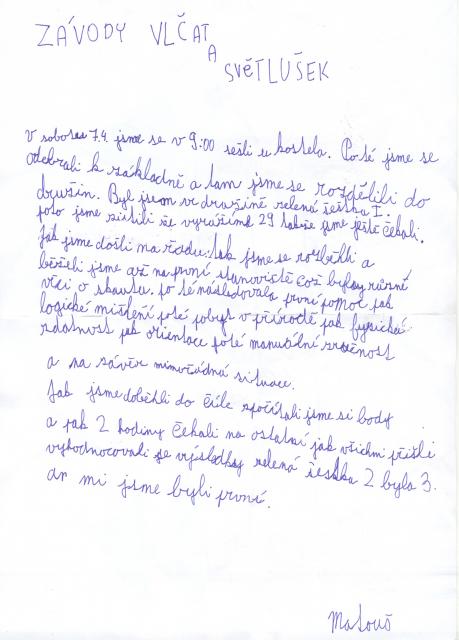 ZÁVODY VLČAT
A
SVĚTLUŠEK
V sobotu 7.4. jsme se v 9:00 sešli u kostela. Poté jsme se
odebrali k základně a tam jsme se rozdělili do
družin. Byl jsem v družině zelená šestka I.
poto jsme zistili že vyrážíme 29 takže jsme ještě čekali.
Jak jsme došli na řadu tak jsme se rozběhli a
běželi jsme až na první stanoviště což byly různé
věci o skautu. po té následovala první pomoc pak
logické mišlení poté pobyt v přírodě pak fyzická
zdatnost pak orientace poté manuální zručnost
a na závěr mimořádná situace.
Jak jsme doběhli do cíle spočítali jsme si body
a pak 2 hodiny čekali na ostatní jak všichni přišli
vyhodnocovali se výsledky zelená šestka 2 byla 3.
ar mi jsme byli první.
Matouš